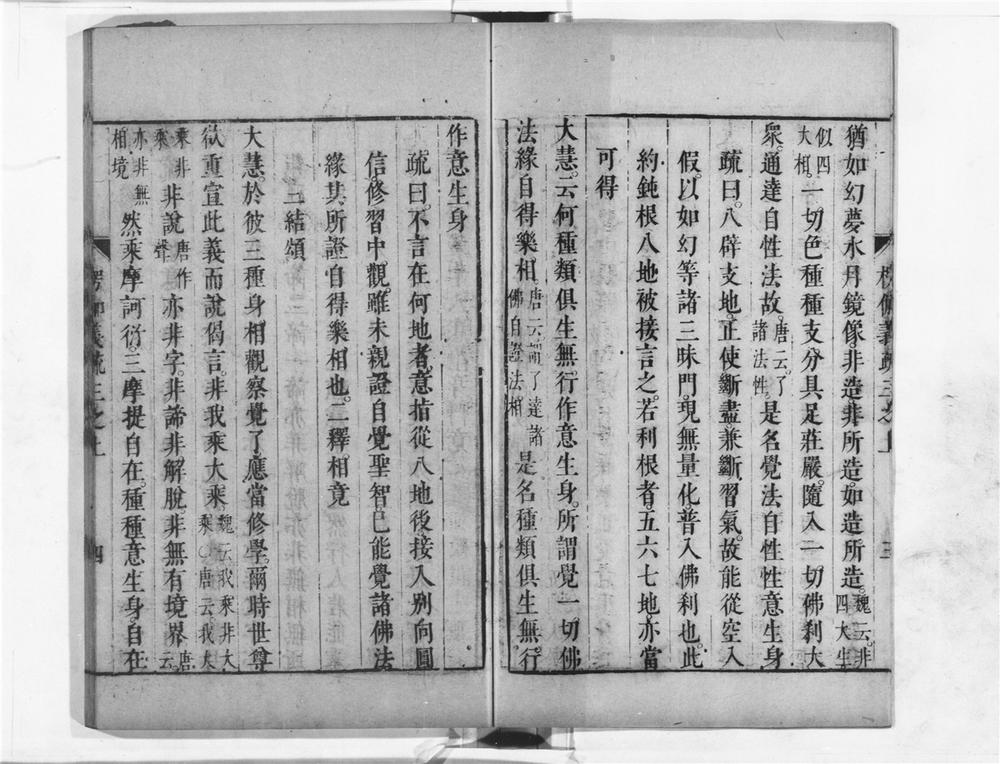 猶如幻夢水月鏡像非造非所造如造所造魏云非四大生
似四大相一切色種種支分具足莊嚴隨入一切佛刹大
衆通達自性法故唐云了諸法性是名覺法自性性意生身
疏曰八辟支地正使斷盡兼斷習氣故能從空入
假以如幻等諸三昧門現無量化普入佛刹也此
約鈍根八地被接言之若利根者五六七地亦當
可得
大慧云何種類俱生無行作意生身所謂覺一切佛
法緣自得樂相唐云謂了達諸佛自證法相是名種類俱生無行
作意生身
疏曰不言在何地者意指從八地後接入別向圓
信修習中觀雖未親證自覺聖智已能覺諸佛法
緣其所證自得樂相也二釋相竟
三結頌
大慧於彼三種身相觀察覺了應當修學爾時世尊
欲重宣此義而說偈言非我乘大乘魏云我乘非大乘唐云我大
乘非乘非說唐作聲亦非字非諦非解脫非無有境界唐云
亦非無相境然乘摩訶衍三摩提自在種種意生身自在
楞伽義疏三之上
三
楞伽義疏三之上
四